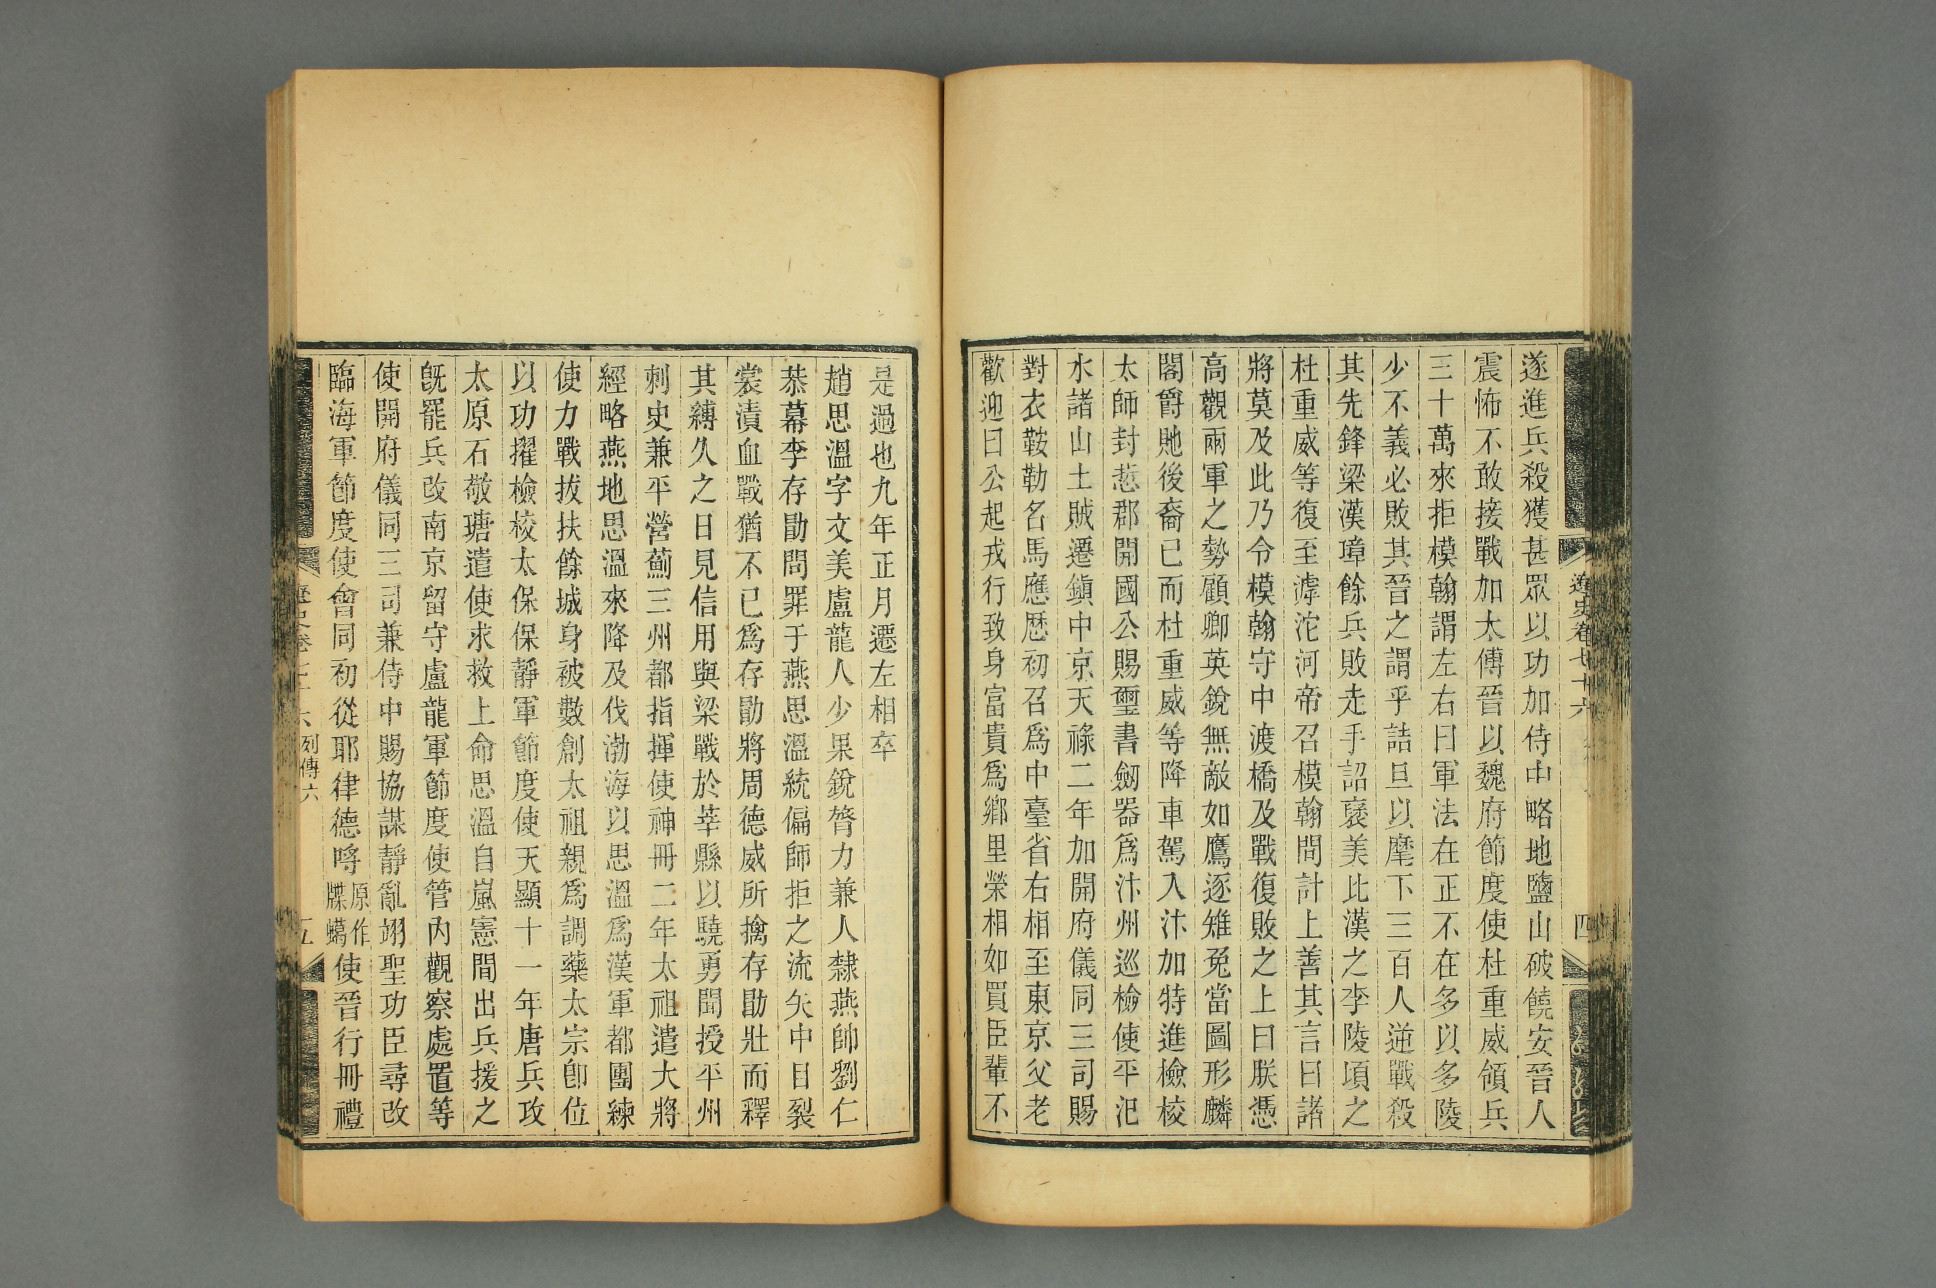 遼史卷七十六
四
遂進兵殺獲甚眾以功加侍中略地鹽山破饒安晉人
震怖不敢接戰加太傅晉以魏府節度使杜重威領兵
三十萬來拒模翰謂左右曰軍法在正不在多以多陵
少不義必敗其晉之謂乎詰旦以麾下三百人逆戰殺
其先鋒梁漢璋餘兵敗走手詔褒美比漢之李陵頃之
杜重威等復至滹沱河帝召模翰問計上善其言曰諸
將莫及此乃令模翰守中渡橋及戰復敗之上曰朕憑
高觀兩軍之勢顧卿英銳無敵如鷹逐雉兔當圖形麟
閣爵貤後裔已而杜重威等降車駕入汴加特進檢校
太師封悊郡開國公賜璽書劒器為汴州巡檢使平汜
水諸山土賊遷鎮中京天祿二年加開府儀同三司賜
對衣鞍勒名馬應歷初召為中臺省右相至東京父老
歡迎曰公起戎行致身富貴為鄉里榮相如買臣輩不
是過也九年正月遷左相卒
趙思溫字文美盧龍人少果銳膂力兼人隸燕帥劉仁
恭幕李存勖問罪于燕思溫統偏師拒之流矢中目裂
裳漬血戰猶不已為存勖將周德威所擒存勖壯而釋
其縛久之日見信用與梁戰於莘縣以驍勇聞授平州
刺史兼平營薊三州都指揮使神冊二年太祖遣大將
經略燕地思溫來降及伐渤海以思溫為漢軍都團練
使力戰拔扶餘城身被數創太祖親為調藥太宗卽位
以功擢檢校太保保靜軍節度使天顯十一年唐兵攻
太原石敬瑭遣使求救上命思溫自嵐憲間出兵援之
旣罷兵改南京留守盧龍軍節度使管內觀察處置等
使開府儀同三司兼侍中賜協謀靜亂翊聖功臣尋改
臨海軍節度使會同初從耶律德哷原作牒蠟使晉行冊禮
遼史卷七十六 列傳六
五